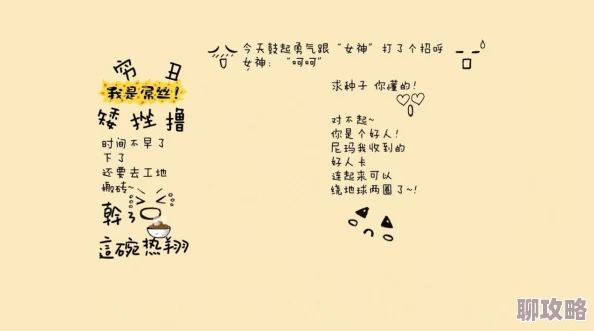 穷 丑
我是屌丝!
矮挫撸
时间不早了
下了
还要去工地
搬砖~
幹了
這碗热翔
今天鼓起勇气跟“女神”打了个招呼
女神:“呵呵”
求种子 你懂的!
对不起~
你是个好人!
尼玛我收到的
好人卡
连起来可以
绕地球两圈了~!
聊攻略